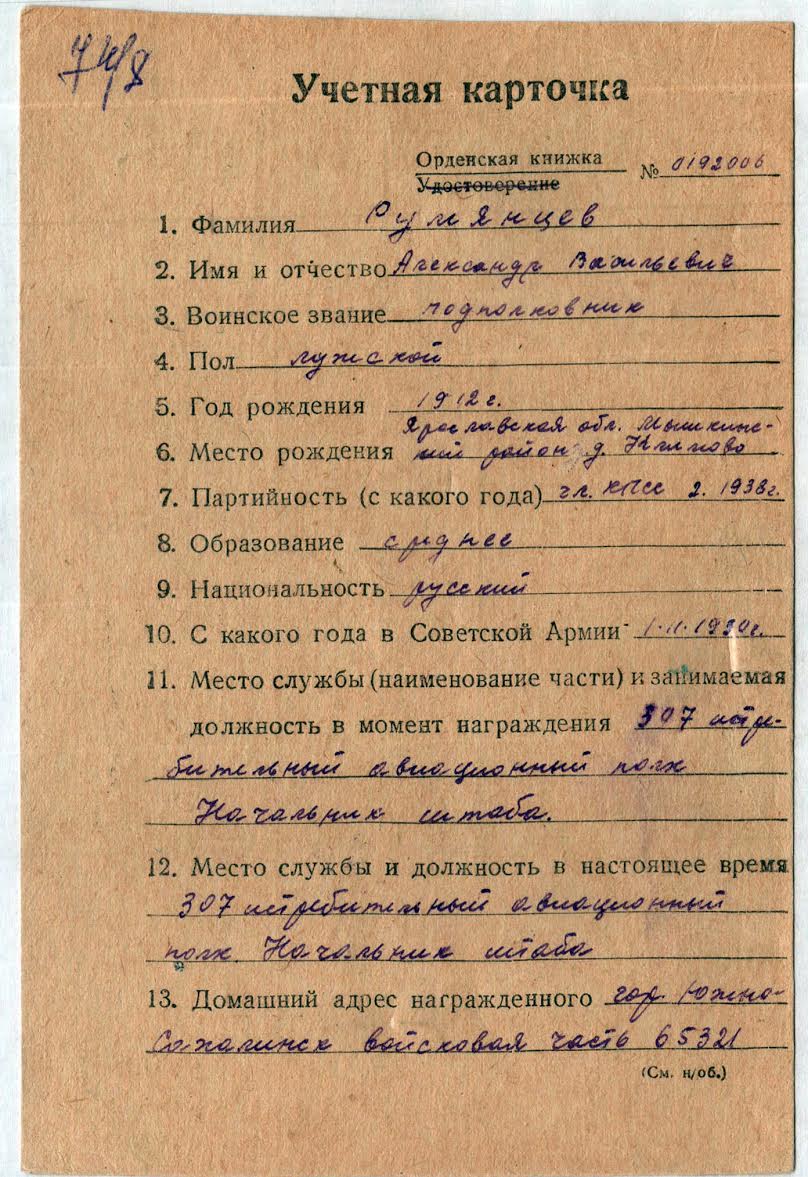 74/8
Учетная карточка
Орденская книжка № 0192006
Удостоверение
1. Фамилия Румянцев
2. Имя и отчество Александр Васильевич
3. Воинское звание подполковник
4. Пол мужской
5. Год рождения 1912 г.
Ярославская обл. Мышкинс-
6. Место рождения кий район д.
7. Партийность (с какого года) чл. КПСС 2. 1938г.
8. Образование среднее
9. Национальность русский
10. С какого года в Советской Армии 1.11.1934г.
11. Место службы (наименование части) и занимаемая
должность в момент награждения 307 истре-
бительный авиационный полк
Начальник штаба.
12. Место службы и должность в настоящее время
307 истребительный авиационный
полк Начальник штаба
13. Домашний адрес награжденного гор. Южно-
Сахалинск войсковая часть 65321
(См. н/об.)